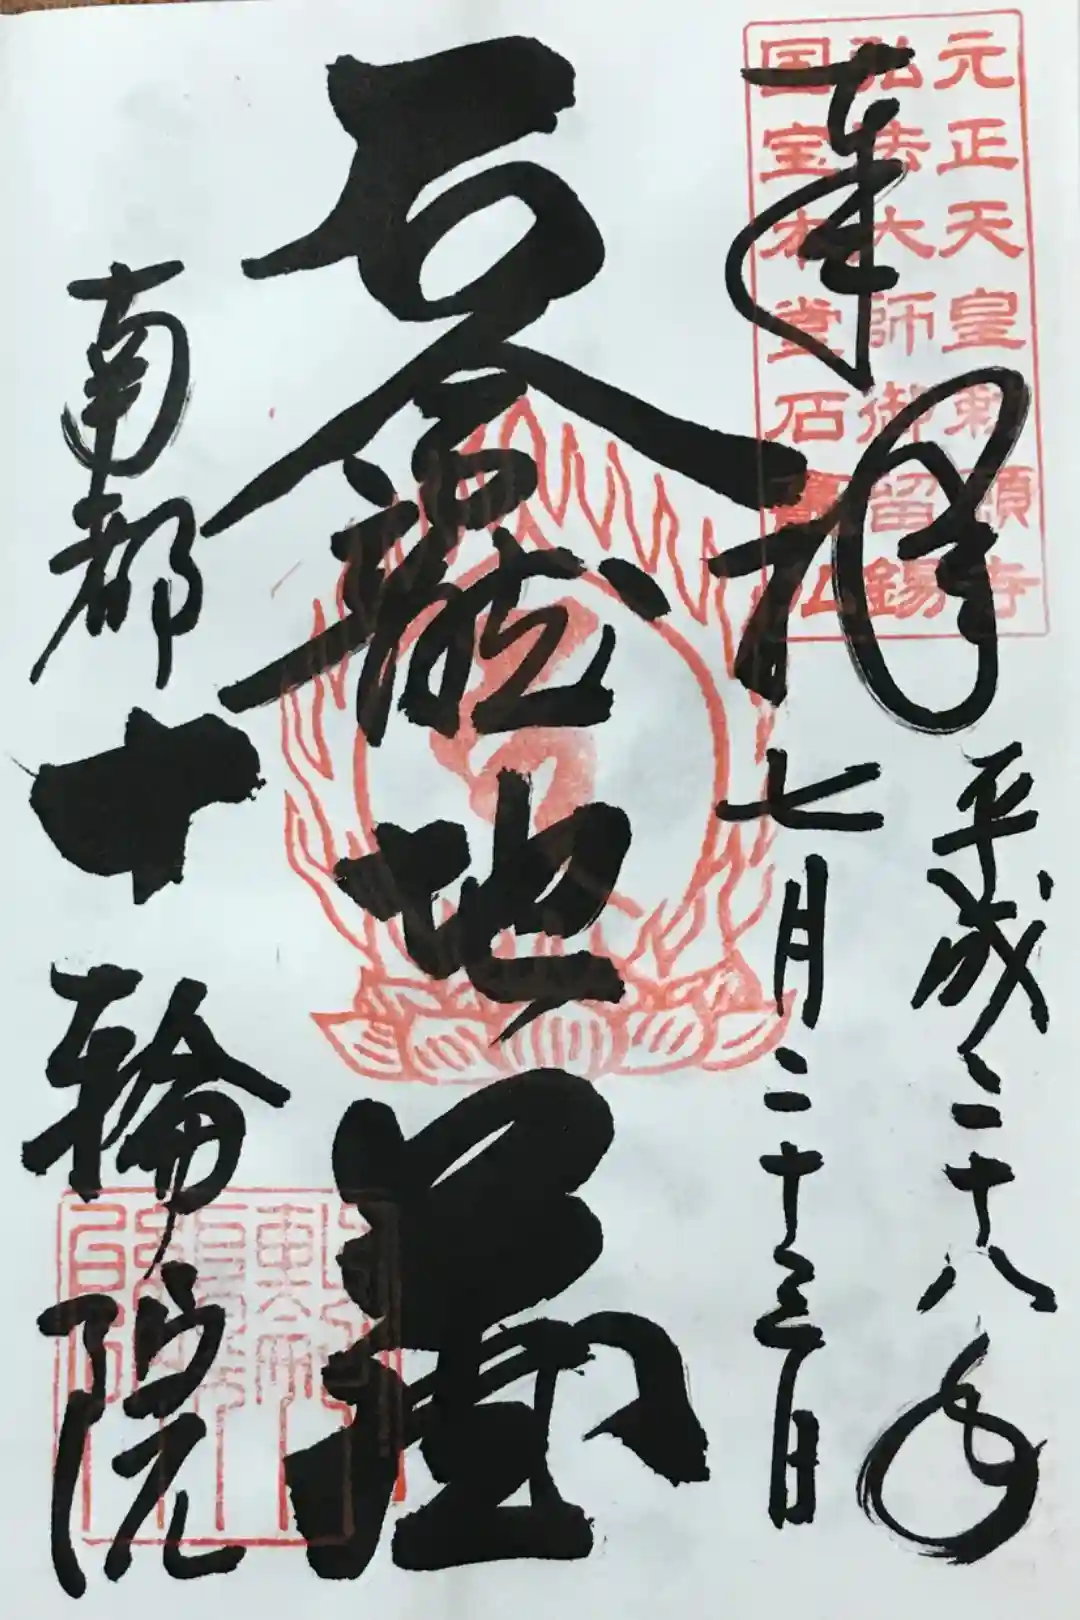 元正天皇勅願寺
弘法大師御留錫
国宝本堂石龕仏
奉拝
平成二十八年
七月二十三日
石龕地蔵
南都十輪院